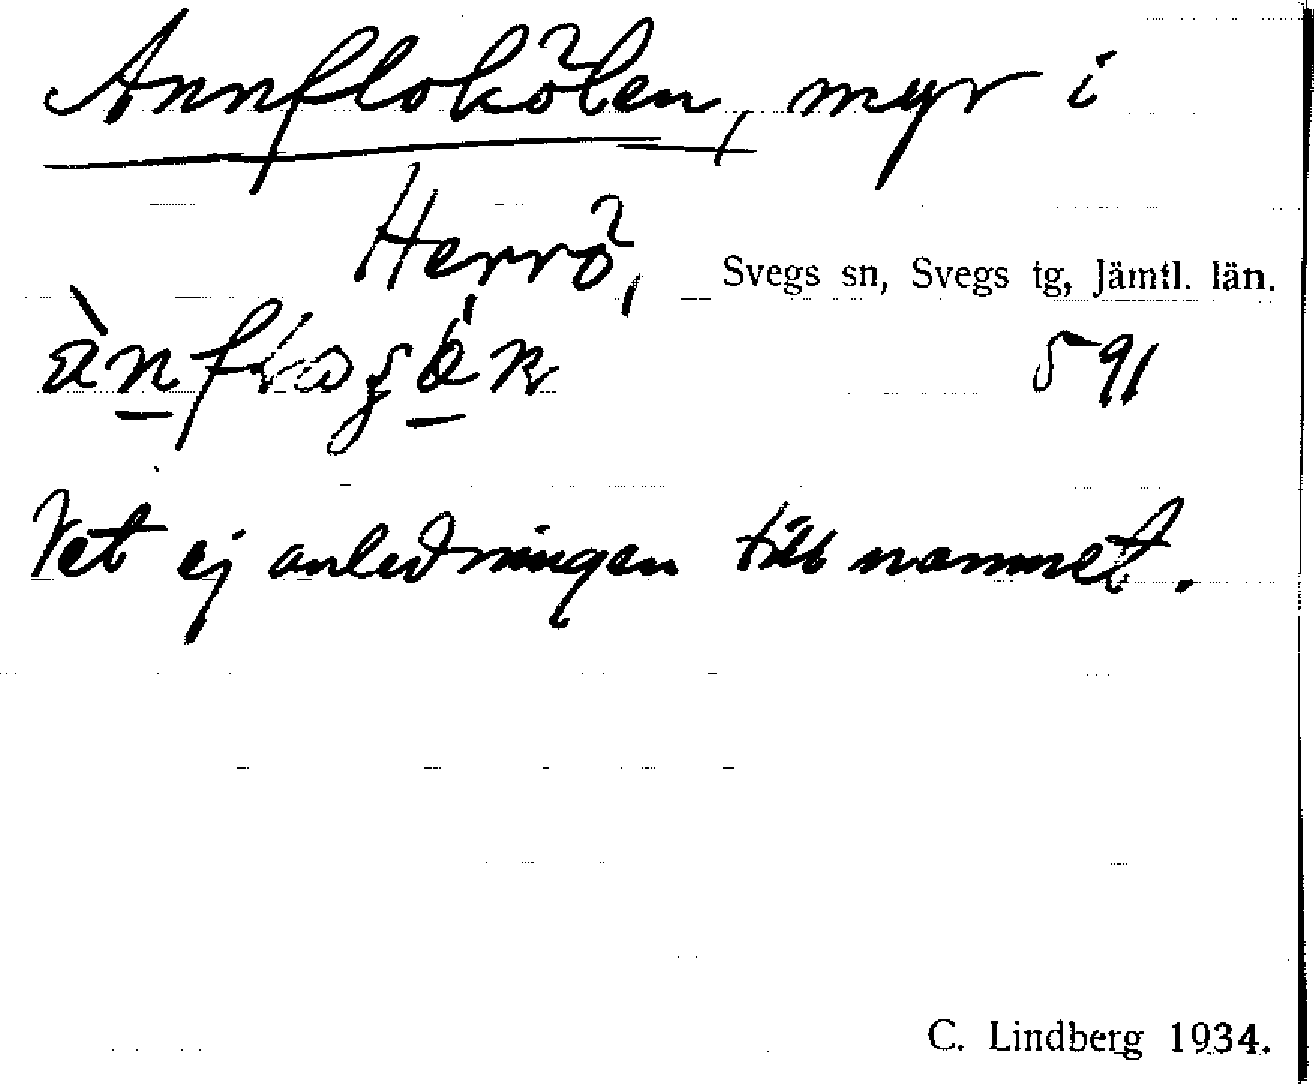 Annflokölen, myr i
Herrö, Svegs sn, Svegs tg, Jämtl. län.
591
Vet ej anledningen till namnet.
C. Lindberg 1934.